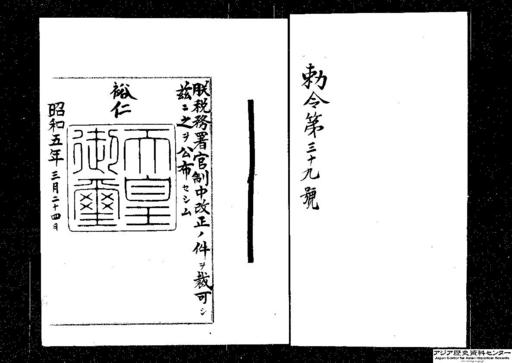 勅令第三十九號
朕税務署官制中改正ノ件ヲ裁可シ
茲ニ之ヲ公布セシム
裕仁
天皇
御璽
昭和五年三月二十四日
アジア歴史資料センター
Japan Center for Asian Historical Records